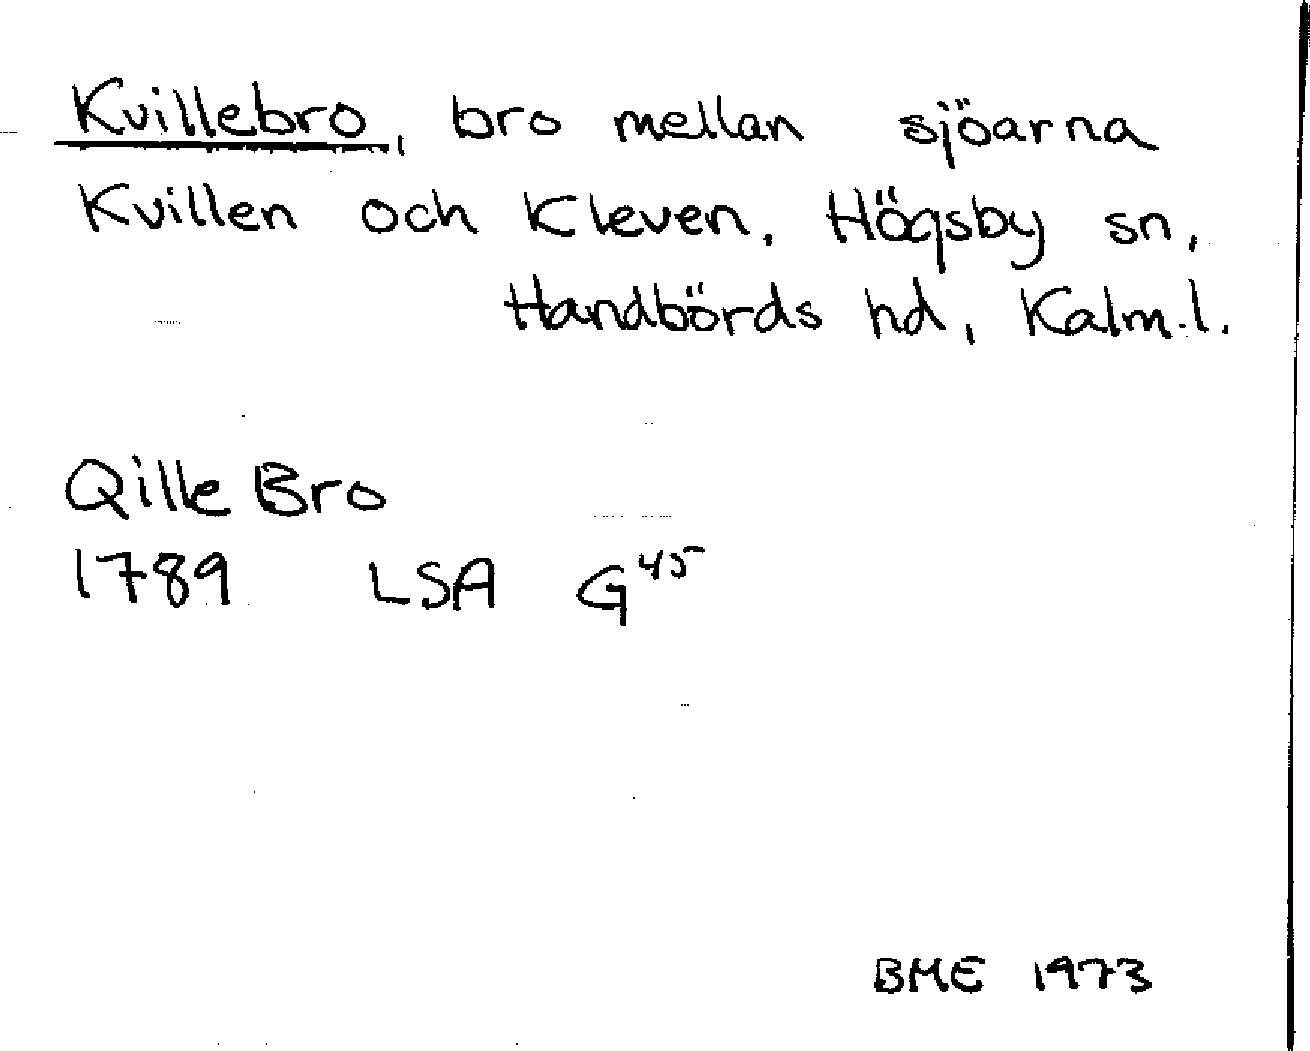 Kvillebro, bro mellan sjöarna
Kvillen och Kleven, Högsby sn,
Handbörds hd, Kalm.l.
Qille Bro
1789 LSA G45
BME 1973